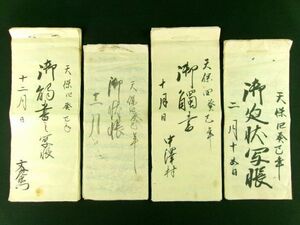 天保四癸巳年
御處状写帳
二月十五日
天保四癸巳年
御觸書
十月日
中澤村
天保四癸巳年
御状帳
十一月
天保四癸巳
御觸書之写控
十二月日